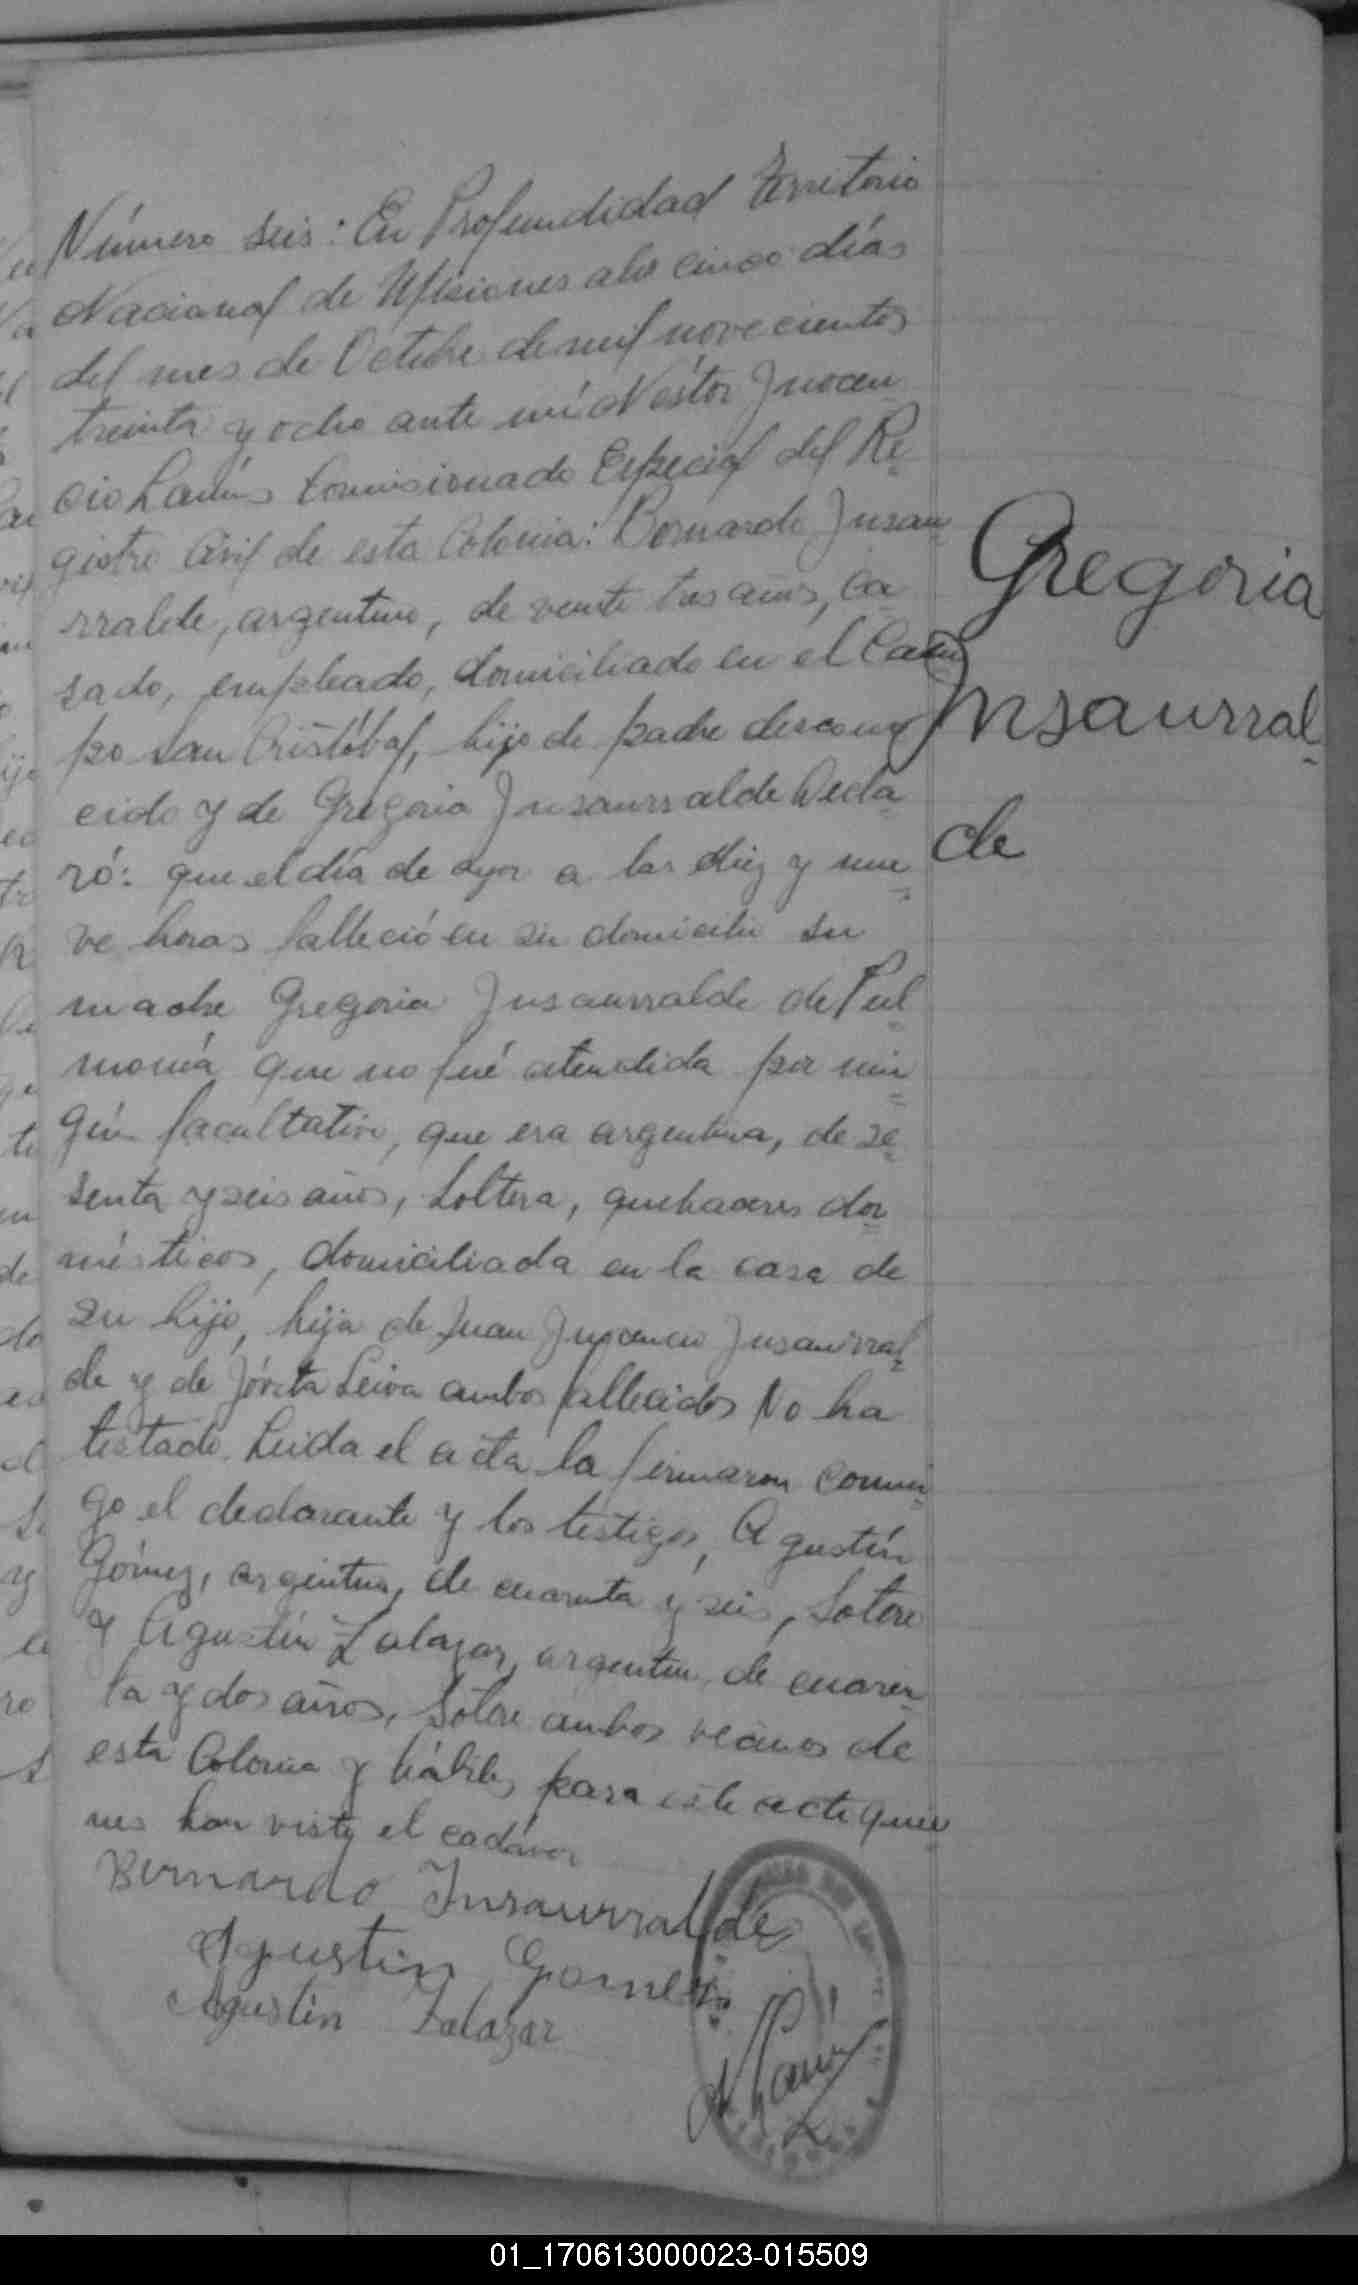 Número seis: En Profundidad Territorio
Nacional de Misiones a los cinco días
del mes de Octubre de mil novecientos
treinta y ocho ante mí Néstor Inocen
cio Lanús Comisionado Especial del Re-
gistro Civil de esta Colonia: Bernardo Insau-
rralde, argentino, de veinte tres años, ca-
sado, empleado, domiciliado en el Cam
po San Cristóbal, hijo de padre descono
cido y de Gregoria Insaurralde Decla-
ró: que el día de ayer a las diez y nue-
ve horas falleció en su domicilio su
madre Gregoria Insaurralde de Pul-
monía que no fué atendida por nin-
gún facultativo, que era argentina, de se-
senta y seis años, soltera, quehaceres do-
mésticos, domiciliada en la casa de
su hijo, hija de Juan Inocencio Insaurral-
de y de Leiva ambos fallecidos No ha
testado. Leida el acta la firmaron conmi-
go el declarante y los testigos, Agustín
Gómez, argentino, de cuarenta y seis, Soltero
y Agustín Zalazar, argentino, de cuaren-
ta y dos años, Soltero ambos vecinos de
esta Colonia y hábiles para este acto quie-
nes han visto el cadáver
Bernardo Insaurralde
Agustin Gomez
Agustin Zalazar
Gregoria
Insaurral-
de
01_170613000023-015509